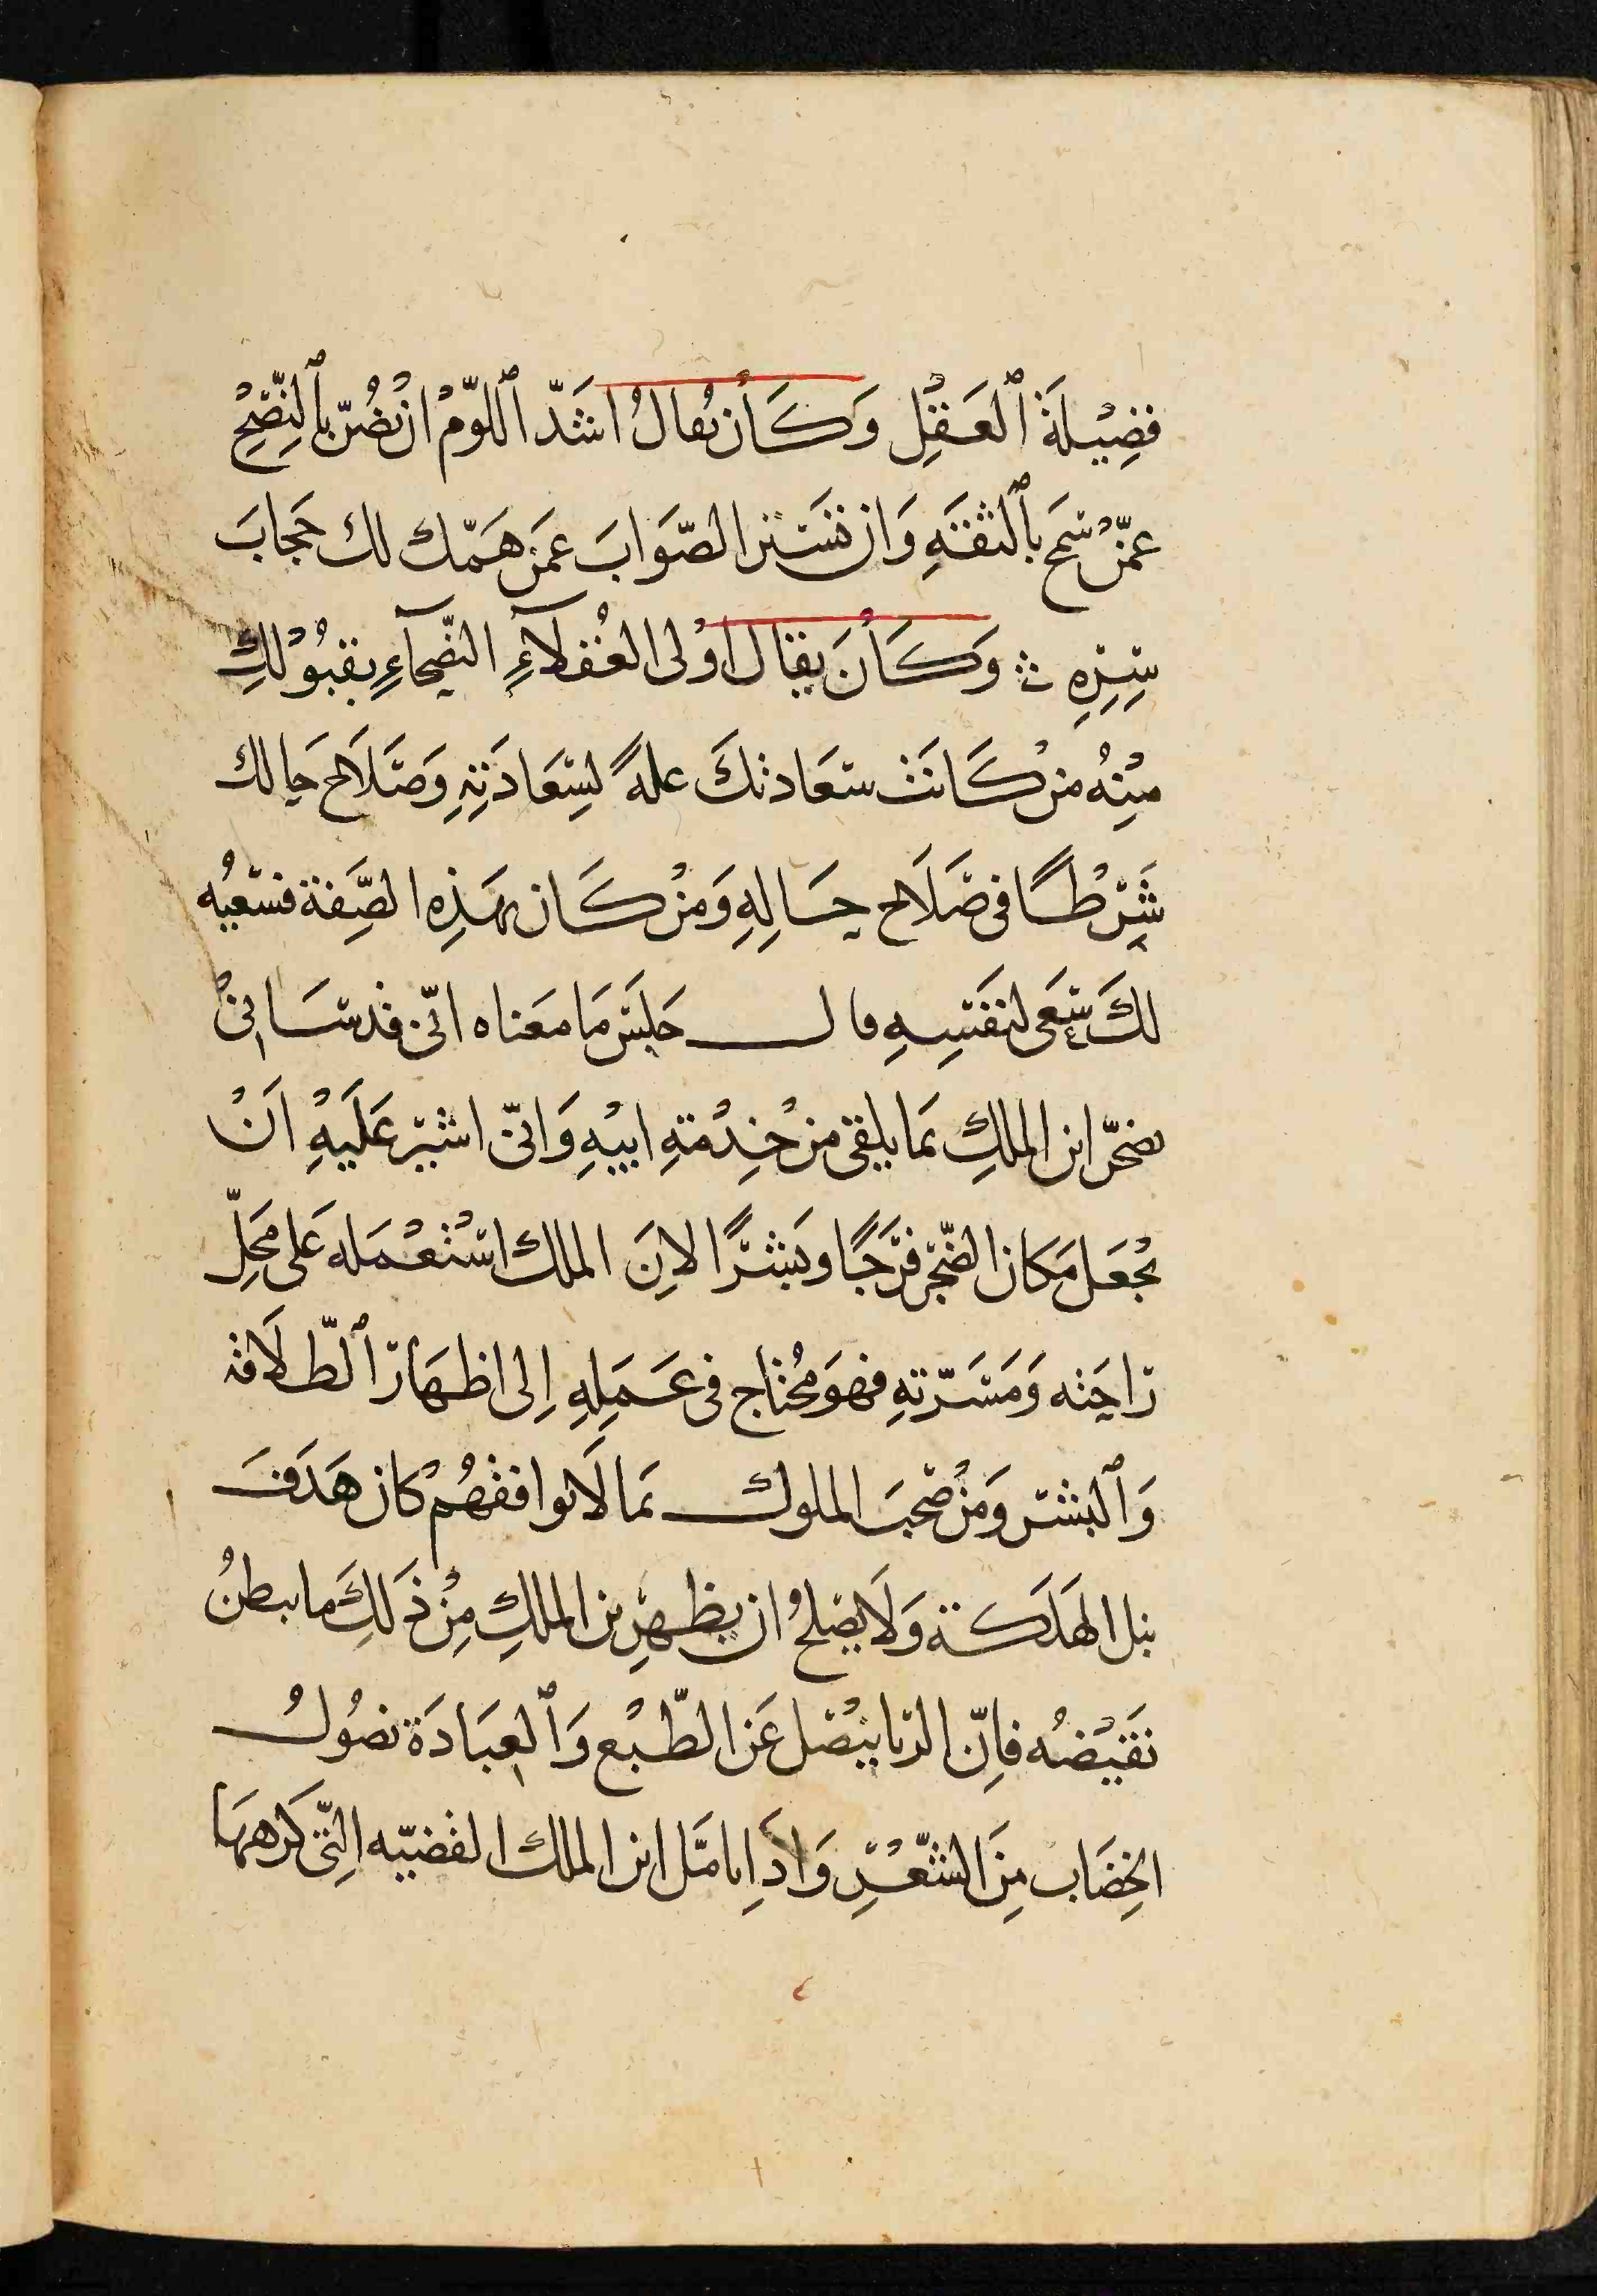 فَضِيْلَةَ ٱلْعَقْلِ وَكَأَن يُقالُ اشَدّ اللّوْمْ ان تضُنّ بِٱلنِّصْحِ
عمّنْ سَمَح بٱلثقَةِ وَان تَسْتُر الصّوَابَ عَمن هَتّك لك حجَابَ
سِتْرِهِ وَكَأنَ يقال اوْلى العُقلآءِ النصَحآءِ بقبُوْلكِ
مِنْهُ منْ كَانَتْ سعَادتكَ علةً لسِعَادَتِهِ وَصَلَاح حَالك
شَرْطًا فى صَلَاح حَالِهِ وَمنْ كَان بهَذِه الصِّفَة فسَعْيُه
لكَ سَعى لنَفسِهِ قال جَلِيْس مَا مَعَناه انّى قد سَانىْ
ضجّر ابن الملكِ بمَا يلقى منْ خِدْمَةِ ابيْهِ وَانّى اشيْر عَلَيْهِ انْ
يجْعَل مَكان الضّجر فَرَجًا وبَشرًا لانَ الملك اسْتْعْمَله عَلى مَحَلِّ
رَاحَته وَمَسَرّتهِ فهوَ مُحْتاج فى عَمَلِهِ اِلى اظهَار ٱلطّلَاقه
وَٱلبشر وَمَنْ صَحبَ الملوك بمَا لَا يوافقهُمْ كان هَدَفَ
نبل الهَلَكة وَلَا يصْلحُ ان يظهر بن الملكِ مِنْ ذَلكَ ما يبطنُ
نقَيْضهُ فاِنّ الريَا ينْصل عَن الطّبْع وَٱلعبَادَة نصُولُ
الخِضَاب مِنَ الشّعْرِ وَاذَا تامّل ابن الملك القضيّه اِلتّى كَرهَهَا